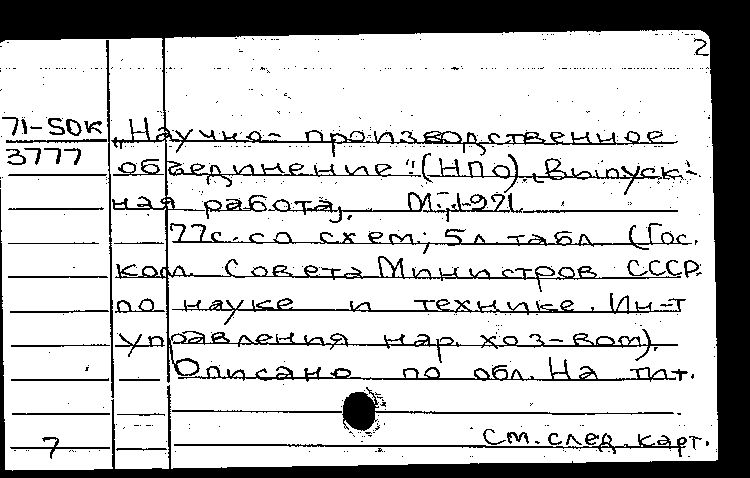 2
71-50к
3777
„Научно-производственное
объединение" (НПО). Выпуск-
ная работа, М., 1971
77с. со схем; 5л. табл (Гос.
ком. Совета Министров СССР
по науке и технике. Ин-т
управления нар. хоз-вом).
Описано по обл. На тит.
см. след. карт.
7